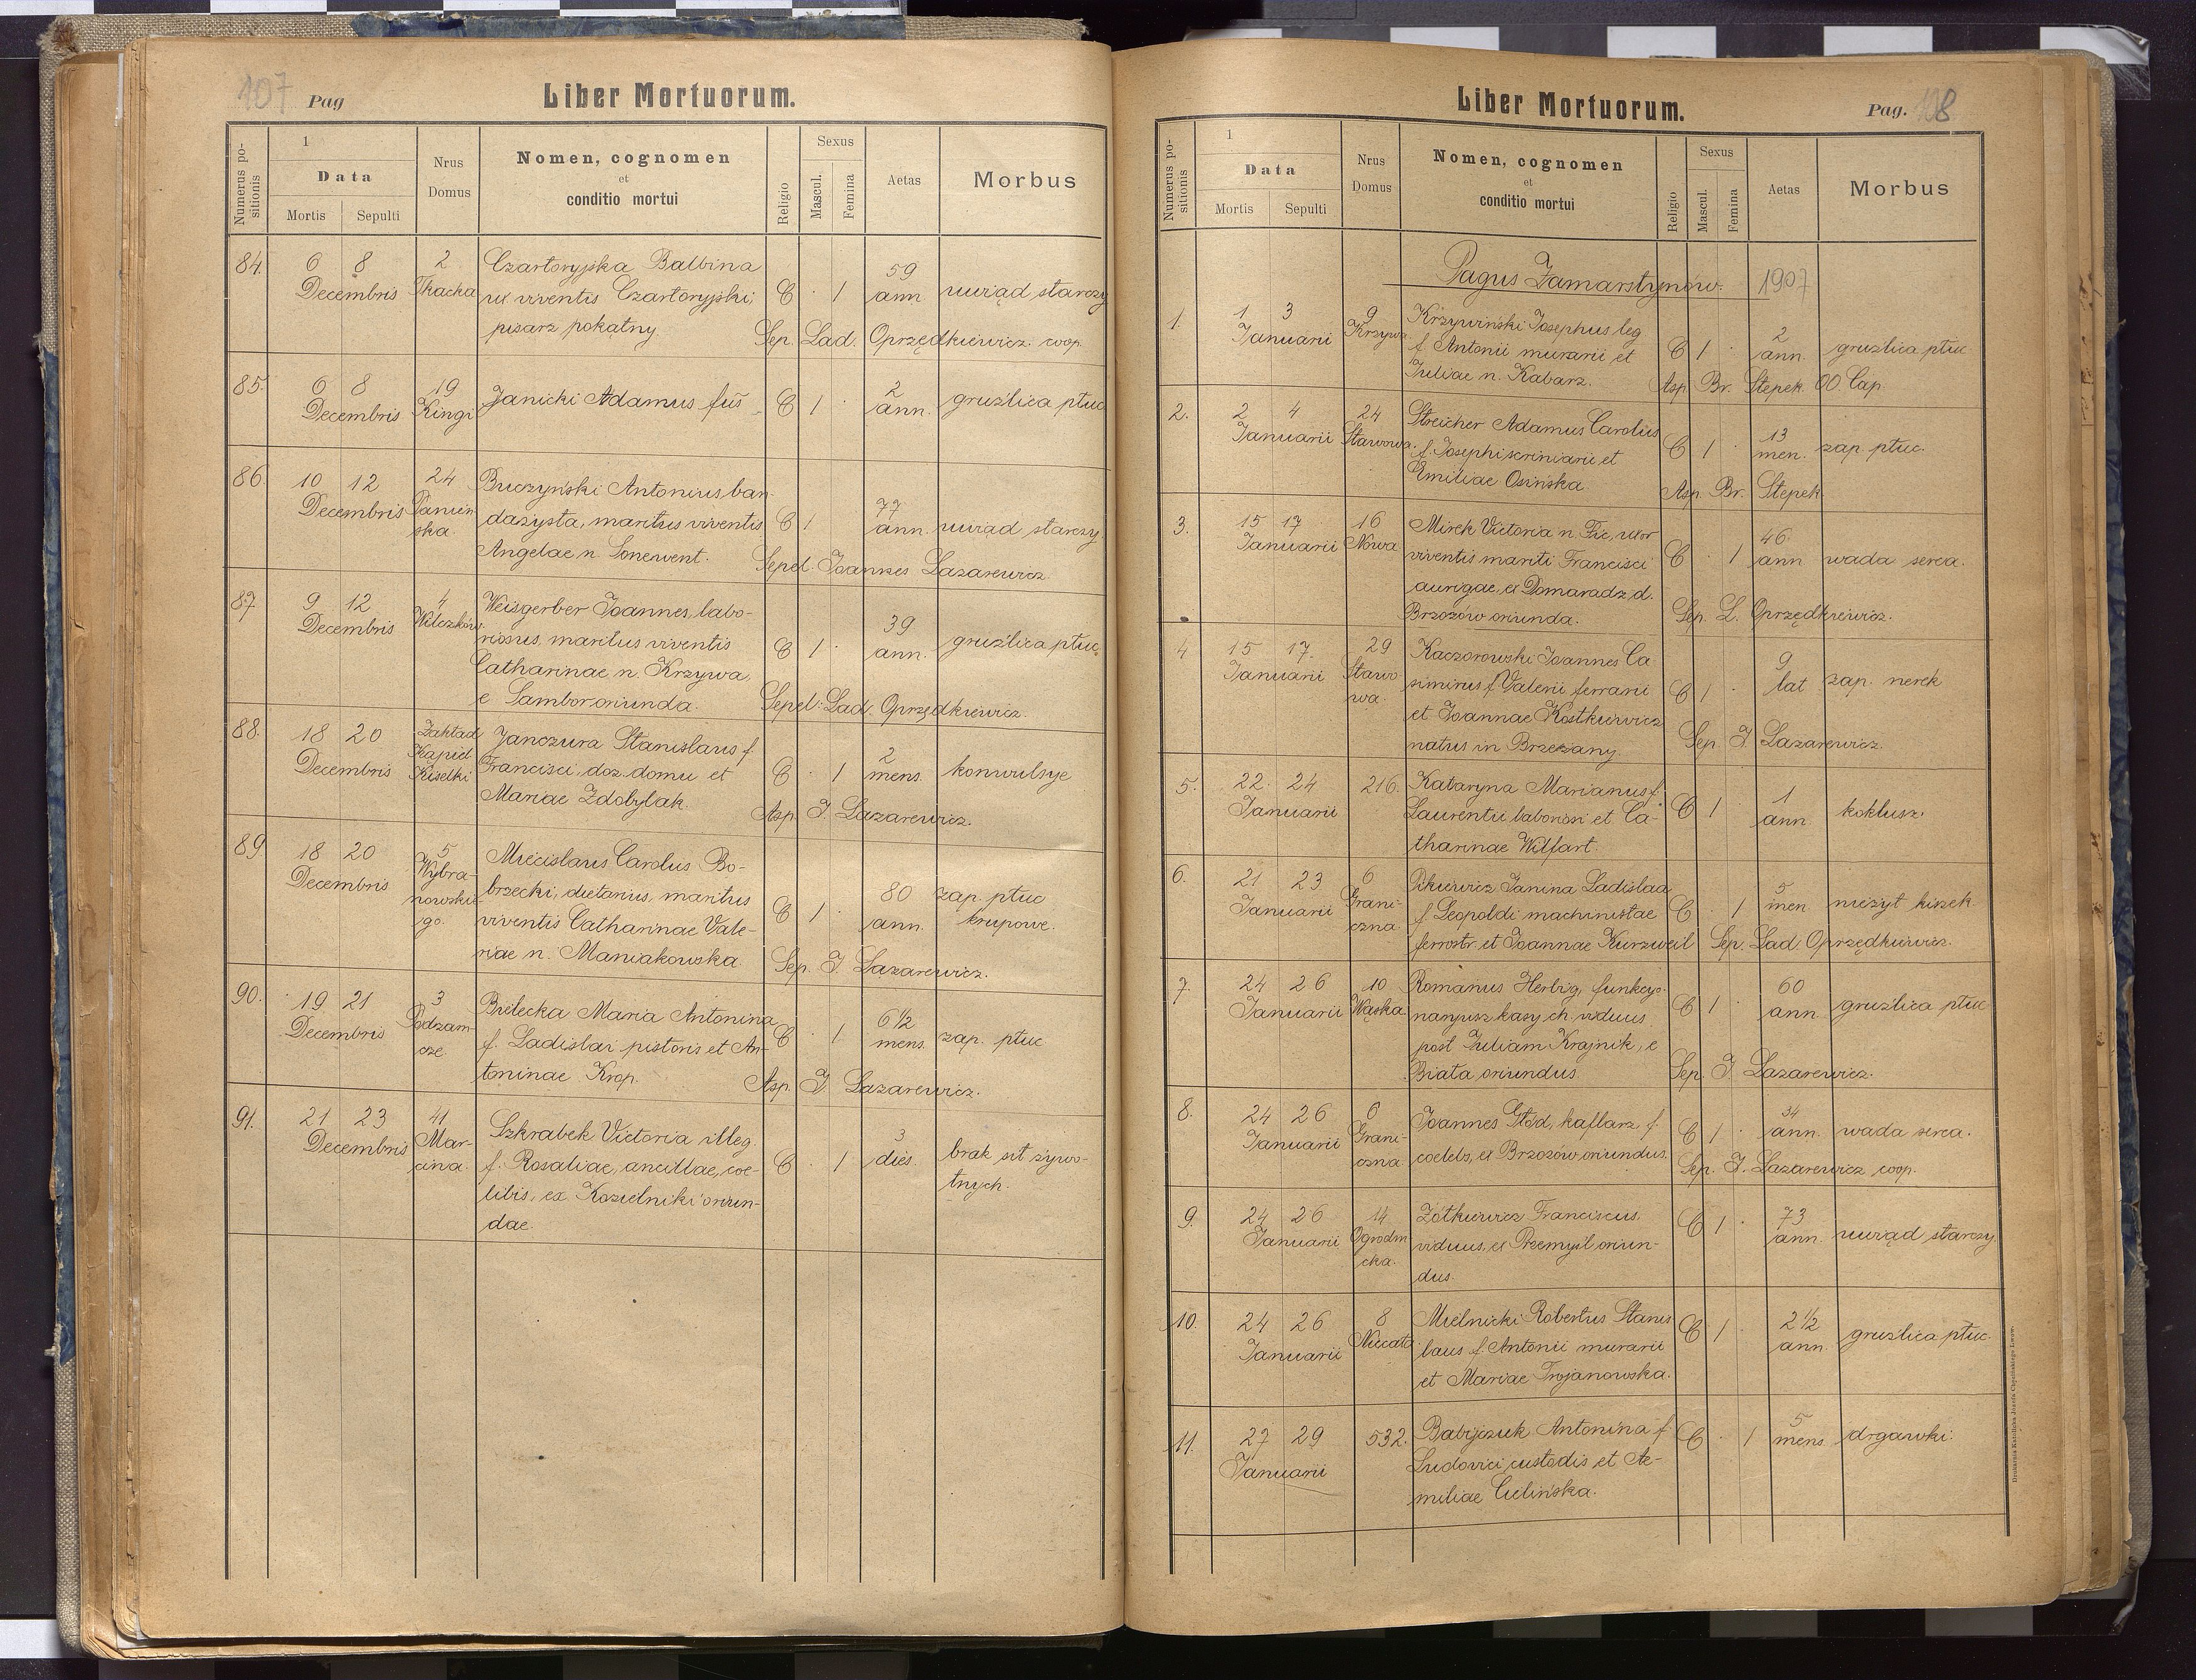 107 Pag
Liber Mortuorum.
Numerus positionis
1
Data
Mortis Sepulti
Nrus
Domus
Nomen, cognomen
et
conditio mortui
Religio
Sexus
Mascul. Femina
Aetas
Morbus
84. 6 8 2 Czartoryjska Balbina 59
Decembris Tkacka ux viventis Czartoryjski, C · 1 ann. uwiąd starczy
pisarz pokątny Sep. Lad. Oprzędkiewicz. coop.
85. 6 8 19 Janicki Adamus fus C 1 · 2 gruźlica płuc
Decembris Kingi ann.
86. 10 12 24 Buczyński Antonius ban-
Decembris Panień dażysta, maritus viventis C 1 77 ann. uwiąd starczy
ska. Angelae n. Lonewent. Sepel. Joannes Lazarewicz.
87. 9 12 4 Weisgerber Joannes, labo-
Decembris Wilczków riosus, maritus viventis C 1 · 39 ann. gruźlica płuc.
Catharinae n. Krzywa,
e Sambor oriunda. Sepel. Lad. Oprzędkiewicz.
88. 18 20 Zakład Janczura Stanislaus f.
Decembris Kąpiel Francisci, doz. domu et C · 1 2 mens. konwulsye
Kiselki Mariae Zdobylak. Asp. J. Lazarewicz.
89 18 20 5 Miecislaus Carolus Bo-
Decembris Wybra- brzecki, dietarius, maritus C 1 · 80 zap. płuc
nowskie viventis Catharinae Vale- ann. krupowe.
go. riae n. Maniakowska. Sep. J. Lazarewicz.
90. 19 21 3 Bielecka Maria Antonina 6½
Decembris Podzam- f. Ladislai pistoris et An- C · 1 mens. zap. płuc
cze. toninae Krop. Asp. J. Lazarewicz.
91. 21 23 41 Szkrabek Victoria illeg. 3
Decembris Mar- f. Rosaliae, ancillae, coe- C · 1 dies. brak sił żywo-
cina. libis, ex Kozielniki oriun- tnych.
dae.
Liber Mortuorum.
Pag. 108
Numerus positionis
1
Data
Mortis Sepulti
Nrus
Domus
Nomen, cognomen
et
conditio mortui
Religio
Sexus
Mascul. Femina
Aetas
Morbus
Pagus Zamarstynów. 1907
1. 1 3 9 Krzywiński Josephus leg
Januarii Krzywa f. Antonii murarii et C 1 · 2 ann. gruźlica płuc
Juliae n. Kabarz. Asp. Br. Stepek OO. Cap.
2. 2 4 24 Streicher Adamus Carolus
Januarii Stawowa. f. Josephi scriniarii et C 1 · 13 men. zap. płuc.
Emiliae Osińska Asp. Br. Stepek
3. 15 17 16 Mirek Victoria n. Pic, uxor 46
Januarii Nowa viventis mariti Francisci C · 1 ann wada serca.
aurigae, ex Domaradz d.
Brzozów oriunda. Sep. L. Oprzędkiewicz.
4 15 17. 29 Kaczorowski Joannes Ca
Januarii Stawo simirus f. Valerii ferrarii C 1 · 9 lat zap. nerek
wa. et Joannae Kostkiewicz
natus in Brzeżany. Sep. J. Lazarewicz.
5. 22. 24 216. Kataryna Marianus f. 1
Januarii Laurentii laboriosi et Ca- C 1 · ann koklusz.
tharinae Wilfart.
6. 21 23 6 Pikiewicz Janina Ladislaa 5
Januarii Grani- f. Leopoldi machinistae C · 1 men nieżyt kiszek
czna. ferrostr. et Joannae Kurzweil Sep. Lad. Oprzędkiewicz.
7. 24 26 10 Romanus Herbig, funkcyo- 60
Januarii Wąska. naryusz kasy ch. viduus C 1 · ann. gruźlica płuc
post Juliam Krajnik, e
Biała oriundus. Sep. J. Lazarewicz.
8. 24 26 6 Joannes Głód, kaflarz, f. 34
Januarii Grani- coelebs, ex Brzozów oriundus. C 1 · ann. wada serca.
czna Sep. J. Lazarewicz coop.
9. 24 26 14 Żółkiewicz Franciscus, C 1 · 73
Januarii Ogrodni viduus, ex Przemyśl oriun- ann. uwiąd starczy.
cka. dus.
10. 24 26 8 Mielnicki Robertus Stanis C 1 · 2½ gruźlica płuc.
Januarii Niecała laus f. Antonii murarii ann.
et Mariae Trojanowska.
11. 27 29 532. Babijczuk Antonina f. C · 1 5 drgawki.
Januarii Ludovici custodis et Ae- mens
miliae Cielińska.